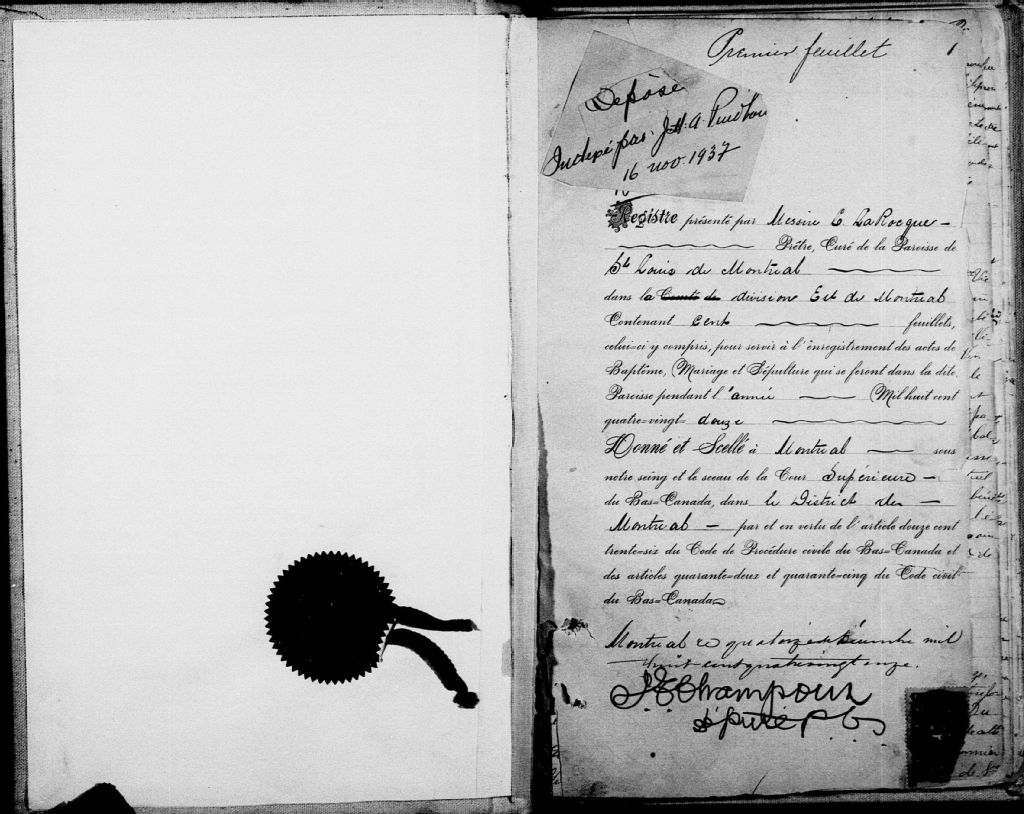 Premier feuillet
1
Déposé
Indexé par J. H. A.
16 nov. 1937
Registre présenté par Messire E LaRocque
Prêtre, Curé de la Paroisse de
St Louis de Montréal
dans la Comté de division Est de Montréal
Contenant cent feuillets,
celui-ci y compris, pour servir à l'enregistrement des actes de
Baptême, Mariage et Sépulture qui se feront dans la dite
Paroisse pendant l'année Mil huit cent
quatre-vingt- douze
Donné et Scellé à Montréal sous
notre seing et le sceau de la Cour Supérieure
du Bas-Canada, dans le District de
Montréal par et en vertu de l'article douze cent
trente-six du Code de Procédure civile du Bas-Canada et
des articles quarante-deux et quarante-cinq du Code civil
du Bas-Canada
Montréal ce quatorze décembre mil
huit cent quatrevingt onze.
Champoux
Député P C S